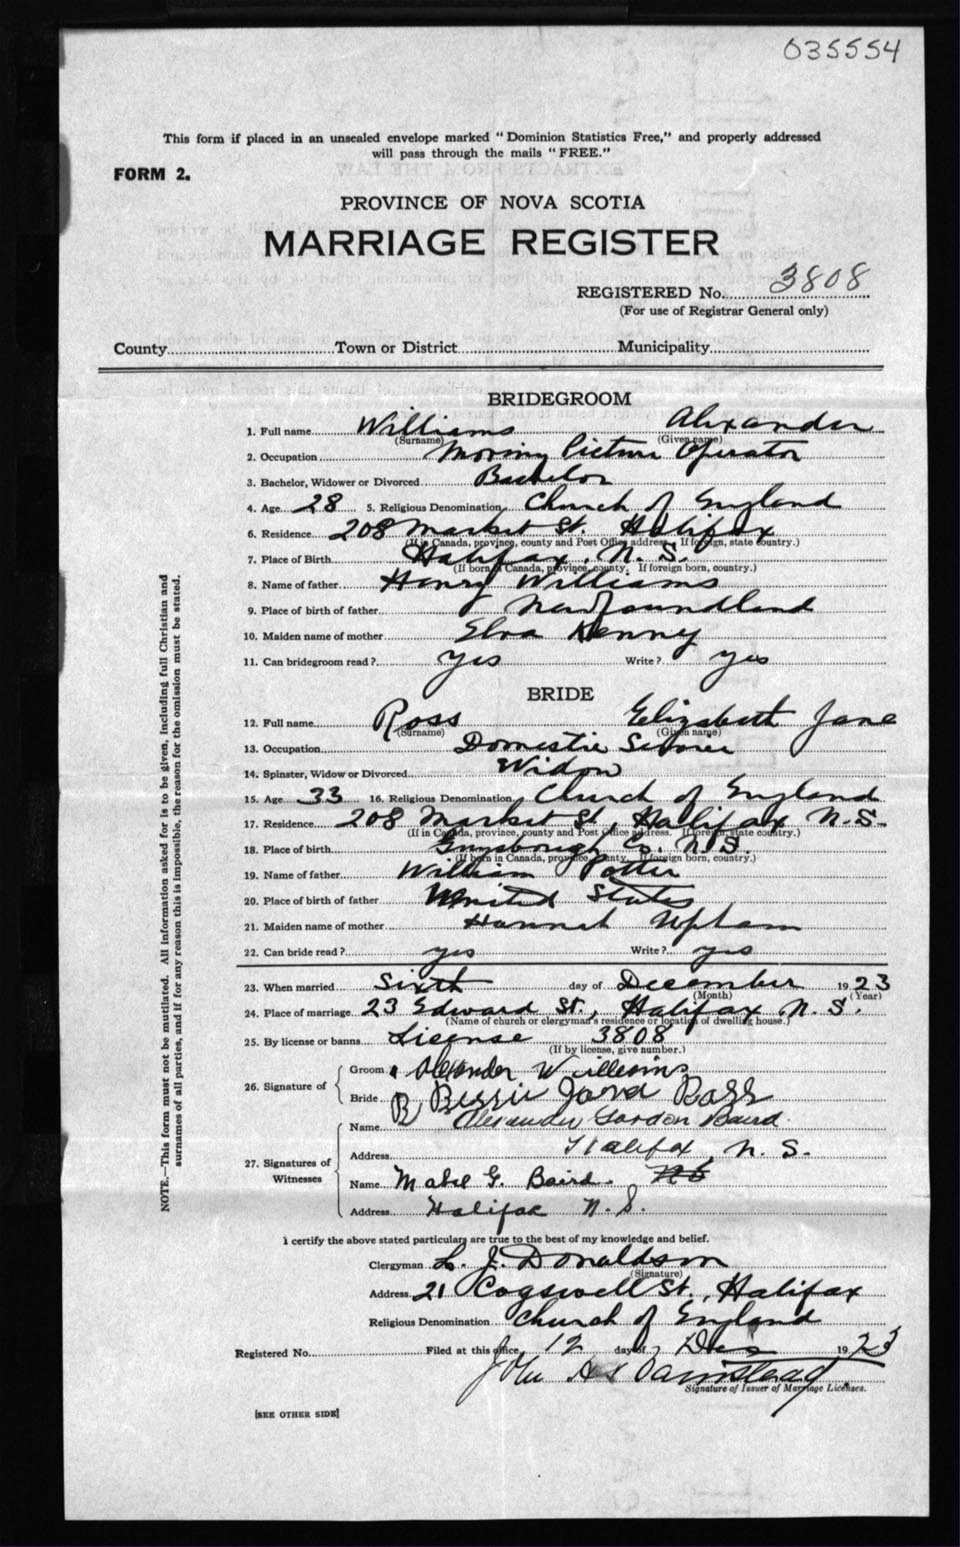 035554
This form if placed in an unsealed envelope marked "Dominion Statistics Free," and properly addressed
will pass through the mails "FREE."
FORM 2.
PROVINCE OF NOVA SCOTIA
MARRIAGE REGISTER
REGISTERED No. 3808
(For use of Registrar General only)
County Town or District Municipality
BRIDEGROOM
1. Full name Williams Alexander
(Surname) (Given name)
2. Occupation Moving Picture Operator
3. Bachelor, Widower or Divorced Bachelor
4. Age 28 5. Religious Denomination Church of England
6. Residence 208 Market St. Halifax
(If in Canada, province, county and Post Office address. If foreign, state country.)
7. Place of Birth Halifax, N.S.
(If born in Canada, province, county. If foreign born, country.)
8. Name of father Henry Williams
9. Place of birth of father Newfoundland
10. Maiden name of mother Elva Kenny
11. Can bridegroom read? yes Write? yes
BRIDE
12. Full name Ross Elizabeth Jane
(Surname) (Given name)
13. Occupation Domestic
14. Spinster, Widow or Divorced Widow
15. Age 33 16. Religious Denomination Church of England
17. Residence 208 Market St, Halifax N.S.
(If in Canada, province, county and Post Office address. If foreign, state country.)
18. Place of birth Guysborough Co. N.S.
(If born in Canada, province, county. If foreign born, country.)
19. Name of father William Potter
20. Place of birth of father United States
21. Maiden name of mother Hannah Upham
22. Can bride read? yes Write? yes
23. When married Sixth day of December 1923
(Month) (Year)
24. Place of marriage 23 Edward St., Halifax N.S.
(Name of church or clergyman's residence or location of dwelling house.)
25. By license or banns License 3808
(If by license, give number.)
26. Signature of
Groom Alexander Williams
Bride B Bessie Ross
27. Signatures of Witnesses
Name Alexander Gordon Baird.
Address Halifax, N.S.
Name Mabel G. Baird.
Address Halifax N.S.
I certify the above stated particulars are true to the best of my knowledge and belief.
Clergyman L. J. Donaldson
(Signature)
Address 21 Cogswell St., Halifax
Religious Denomination Church of England
Registered No. Filed at this office, 12 day of Dec 1923
John
Signature of Issuer of Marriage Licenses.
[SEE OTHER SIDE]
NOTE.—This form must not be mutilated. All information asked for is to be given, including full Christian and
surnames of all parties, and if for any reason this is impossible, the reason for the omission must be stated.